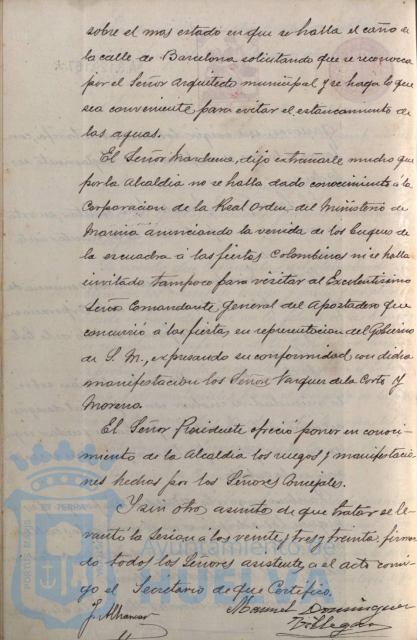 sobre el mas estado en que se halla el caño de
la calle de Barcelona solicitando que se reconozca
por el Señor Arquitecto municipal y se haga lo que
sea conveniente para evitar el estancamiento de
las aguas.
El Señor Marchena, dijo extrañarle mucho que
por la Alcaldia no se halla dado conocimiento á la
Corporacion de la Real Orden del Ministerio de
Marina anunciando la venida de los buques de
la escuadra á las fiestas Colombinas ni se halla
invitado tampoco para visitar al Excelentisimo
Señor Comandante General del Apostadero que
concurrió á las fiestas en representacion del Gobierno
de S. M., expresando su conformidad con dicha
manifestacion los Señores Vazquez de la Corte y
Moreno.
El Señor Presidente ofreció poner en conoci-
miento de la Alcaldia los ruegos y manifestacio-
nes hechas por los Señores Concejales.
Y sin otro asunto de que tratar se le-
vantó la sesion á las veinte y tres y treinta firman
do todos los Señores asistentes a el acto conmi-
go el Secretario de que Certifico.
Manuel Dominguez
Ayuntamiento de
HUELVA
PORTUS MARIS ET TERRAE